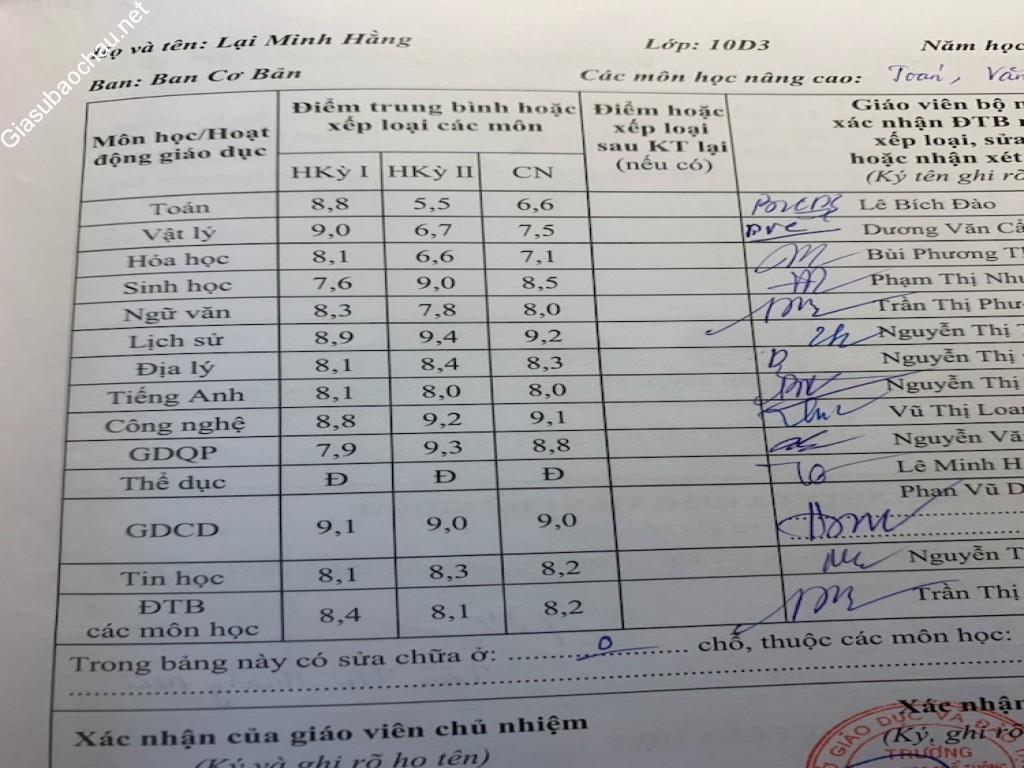 Giasubaochau.net
Họ và tên: Lại Minh Hằng Lớp: 10D3 Năm học
Ban: Ban Cơ Bản Các môn học nâng cao: Toán, Văn
Môn học/Hoạt động giáo dục
Điểm trung bình hoặc xếp loại các môn
Điểm hoặc xếp loại sau KT lại (nếu có)
Giáo viên bộ m
xác nhận ĐTB
xếp loại, sửa
hoặc nhận xét
(Ký tên ghi rõ
HKỳ I HKỳ II CN
Toán 8,8 5,5 6,6 Lê Bích Đào
Vật lý 9,0 6,7 7,5 Dương Văn Cẩ
Hóa học 8,1 6,6 7,1 Bùi Phương T
Sinh học 7,6 9,0 8,5 Phạm Thị Nhu
Ngữ văn 8,3 7,8 8,0 Trần Thị Phư
Lịch sử 8,9 9,4 9,2 Nguyễn Thị T
Địa lý 8,1 8,4 8,3 Nguyễn Thị
Tiếng Anh 8,1 8,0 8,0 Nguyễn Thị
Công nghệ 8,8 9,2 9,1 Vũ Thị Loan
GDQP 7,9 9,3 8,8 Nguyễn Vă
Thể dục Đ Đ Đ Lê Minh H
GDCD 9,1 9,0 9,0 Phan Vũ D
Tin học 8,1 8,3 8,2 Nguyễn T
ĐTB các môn học 8,4 8,1 8,2 Trần Thị
Trong bảng này có sửa chữa ở: 0 chỗ, thuộc các môn học:
Xác nhận của giáo viên chủ nhiệm Xác nhận
(Ký và ghi rõ họ tên) (Ký, ghi rõ
GIÁO DỤC VÀ Đ
TRƯỜNG